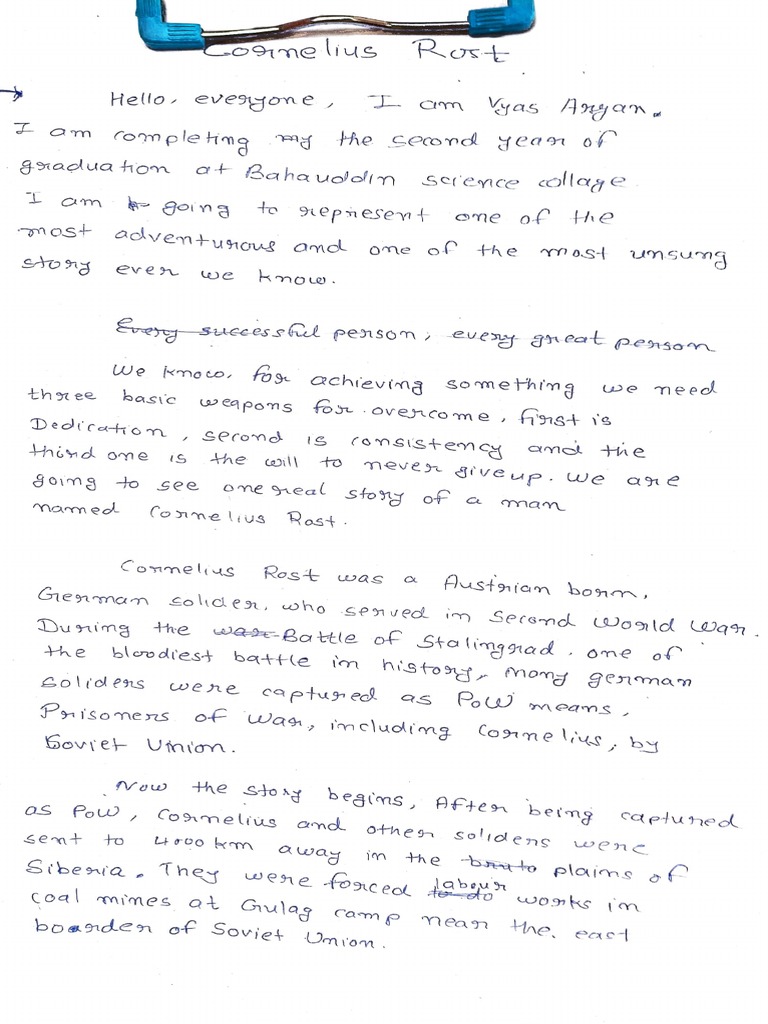 Cornelius Rost
Hello, everyone, I am Vyas Aryan.
I am completing my the second year of
graduation at Bahauddin science collage
I am going to represent one of the
most adventurous and one of the most unsung
story ever we know.
Every successful person, every great person
We know, for achieving something we need
three basic weapons for overcome, first is
Dedication, second is consistency and the
third one is the will to never give up. We are
going to see one real story of a man
named Cornelius Rost.
Cornelius Rost was a Austrian born,
German solider, who served in Second World War.
During the war Battle of Stalingrad, one of
the bloodiest battle in history, many german
soliders were captured as PoW means,
Prisoners of War, including Cornelius, by
Soviet Union.
Now the story begins, After being captured
as PoW, Cornelius and other soliders were
sent to 4000 km away in the plains of
Siberia. They were forced labour to do works in
coal mines at Gulag camp near the. east
boarder of Soviet Union.